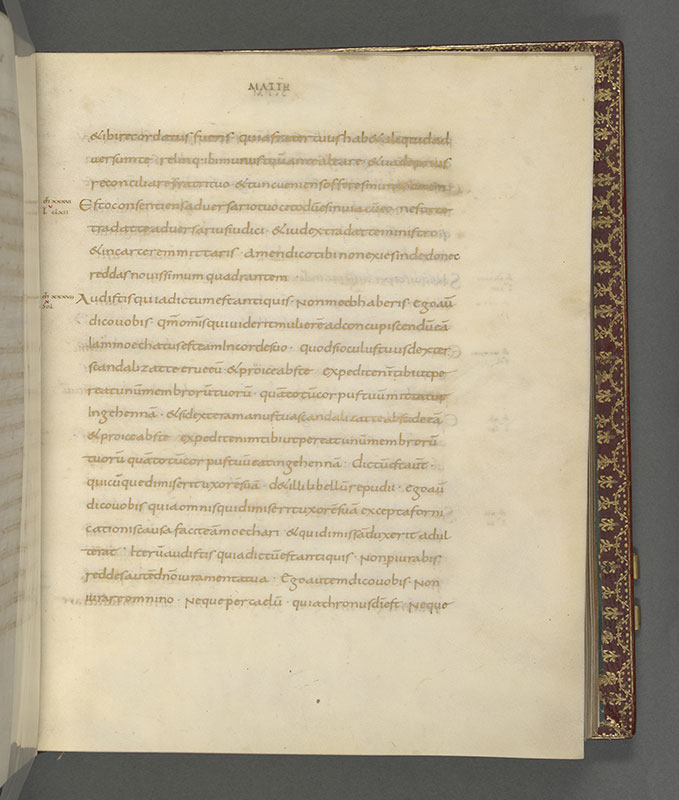 MATTH
& ibi recordatus fueris · quia frater tuus hab& aliquid ad
versum te · relinque ibi munus tuum ante altare · & vade prius
reconciliare fratri tuo · & tunc veniens offeres munus tuum
Esto consentiens adversario tuo cito dū es in via cū eo · ne forte
tradat te adversarius iudici · & iudex tradat te ministro
& in carcerem mittaris · amen dico tibi non exies inde donec
reddas novissimum quadrantem
Audistis quia dictum est antiquis · Non moechaberis · Ego aū
dico vobis · qm̄ omīs qui viderit mulierē ad concupiscendū eā
Iam moechatus est eam In corde suo · quod si oculus tuus dexter
scandalizat te erue eū & proice abs te · expedit enī tibi ut pe
reat unū membrorū tuorū · quā totū corpus tuum mittatur
In gehennā · & si dextera manus tua scandalizat te abscide eā
& proice abs te · expedit enim tibi ut pereat unū membrorū
tuorū quā totū corpus tuū eat in gehennā · dictū est aut̄ ·
quicūque dimiserit uxorē suā · d& illi libellū repudii · ego aū
dico vobis quia omnis qui dimiserit uxorē suā excepta forni
cationis causa facit eā moechari · & qui dimissā duxerit adul
terat · Iterū audistis quia dictū est antiquis · Non piurabis
reddes autē dn̄o iuramenta tua · Ego autem dico vobis · Non
iurare omnino · Neque per caelū · quia thronus dī est · Neque